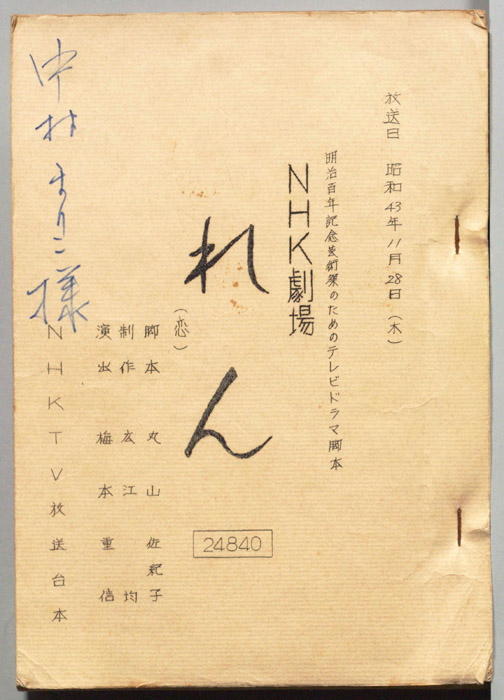 放送日 昭和43年11月28日(木)
明治百年記念芸術祭のためのテレビドラマ脚本
NHK劇場
れん
(恋)
脚本 丸山佐紀子
制作 広江均
演出 梅本重信
NHKTV放送台本
中村まり子様
24840